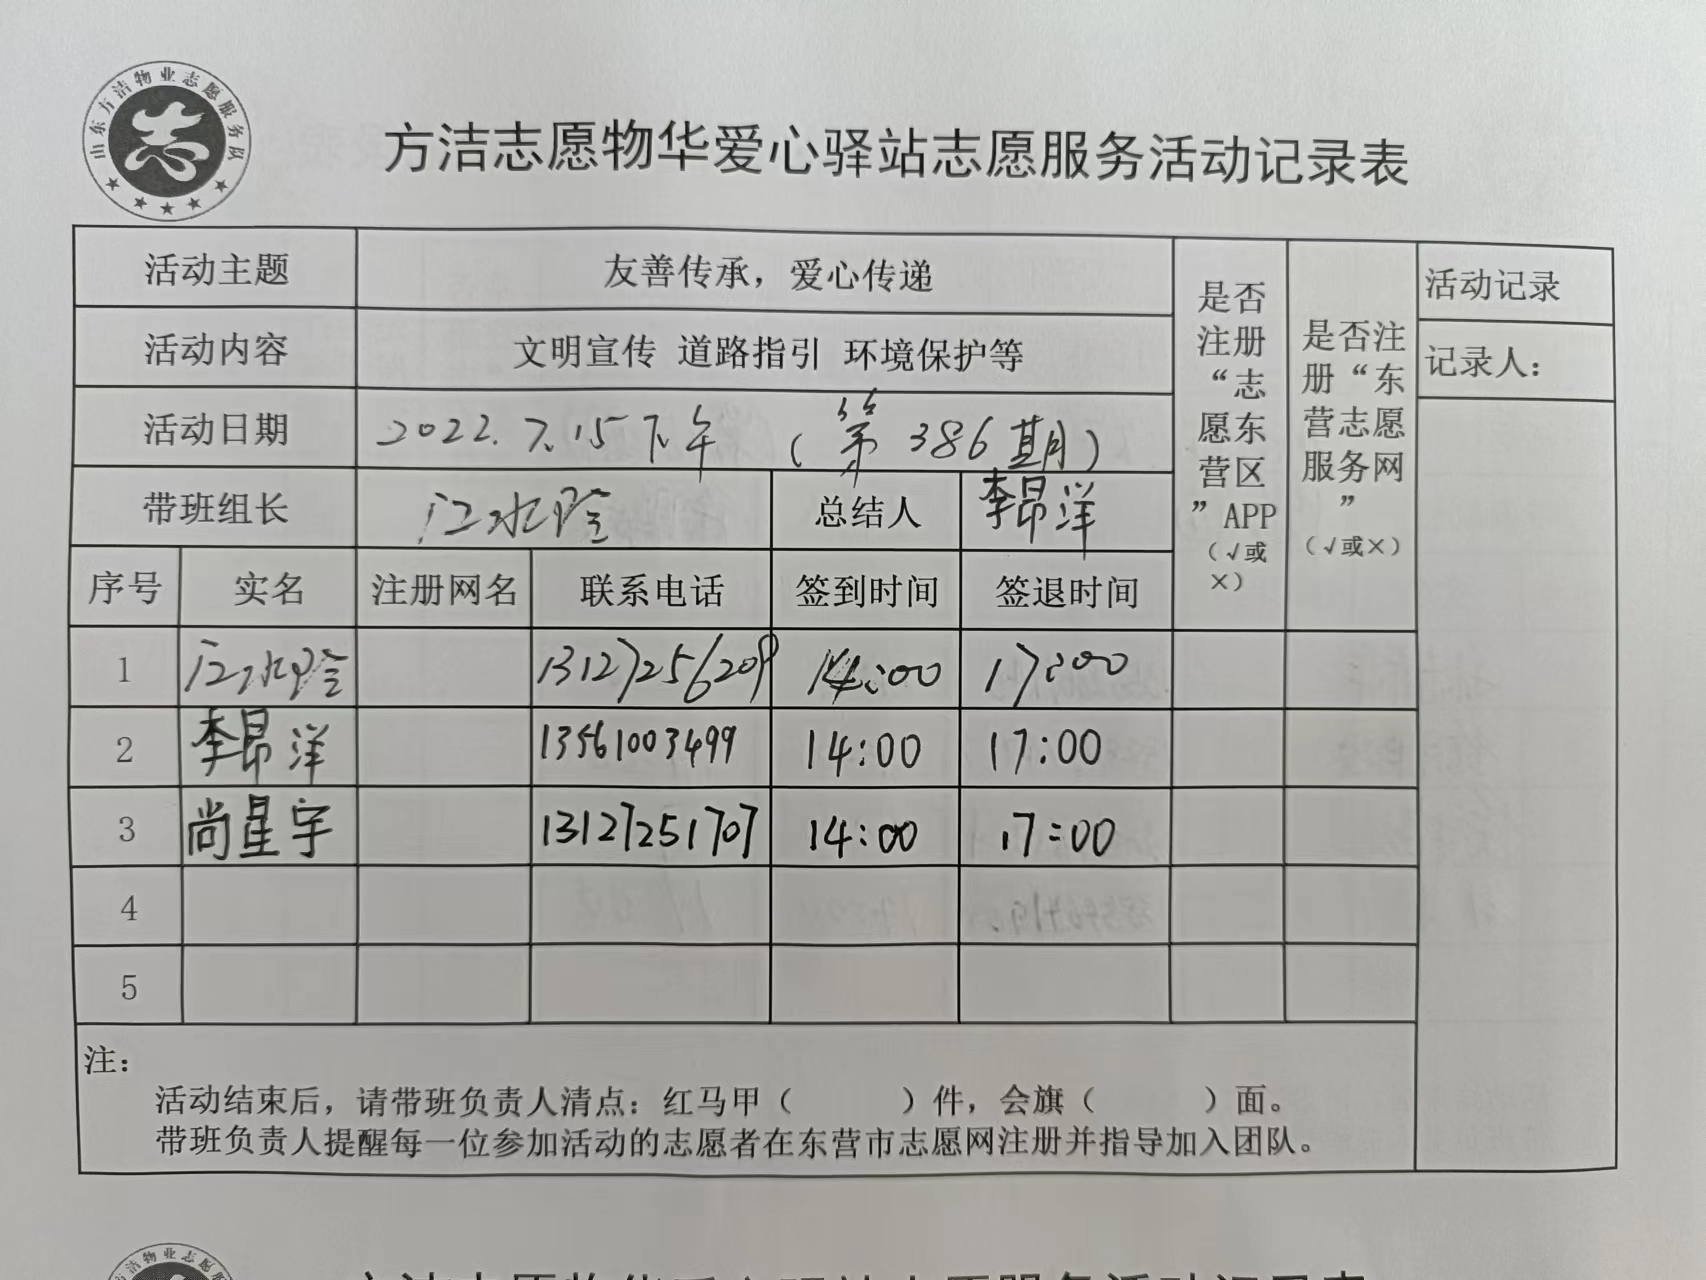 山东方洁物业志愿服务队
方洁志愿物华爱心驿站志愿服务活动记录表
活动主题 友善传承，爱心传递
活动内容 文明宣传 道路指引 环境保护等
活动日期 2022.7.15下午 （第386期）
带班组长 江水 总结人 李昂洋
是否注册“志愿东营区”APP（√或×）
是否注册“东营志愿服务网”（√或×）
活动记录
记录人：
序号 实名 注册网名 联系电话 签到时间 签退时间
1 江水 13127256209 14:00 17:00
2 李昂洋 13561003499 14:00 17:00
3 尚星宇 13127251707 14:00 17:00
4
5
注：
活动结束后，请带班负责人清点：红马甲（ ）件，会旗（ ）面。
带班负责人提醒每一位参加活动的志愿者在东营市志愿网注册并指导加入团队。
方洁志愿物华爱心驿站志愿服务活动记录表